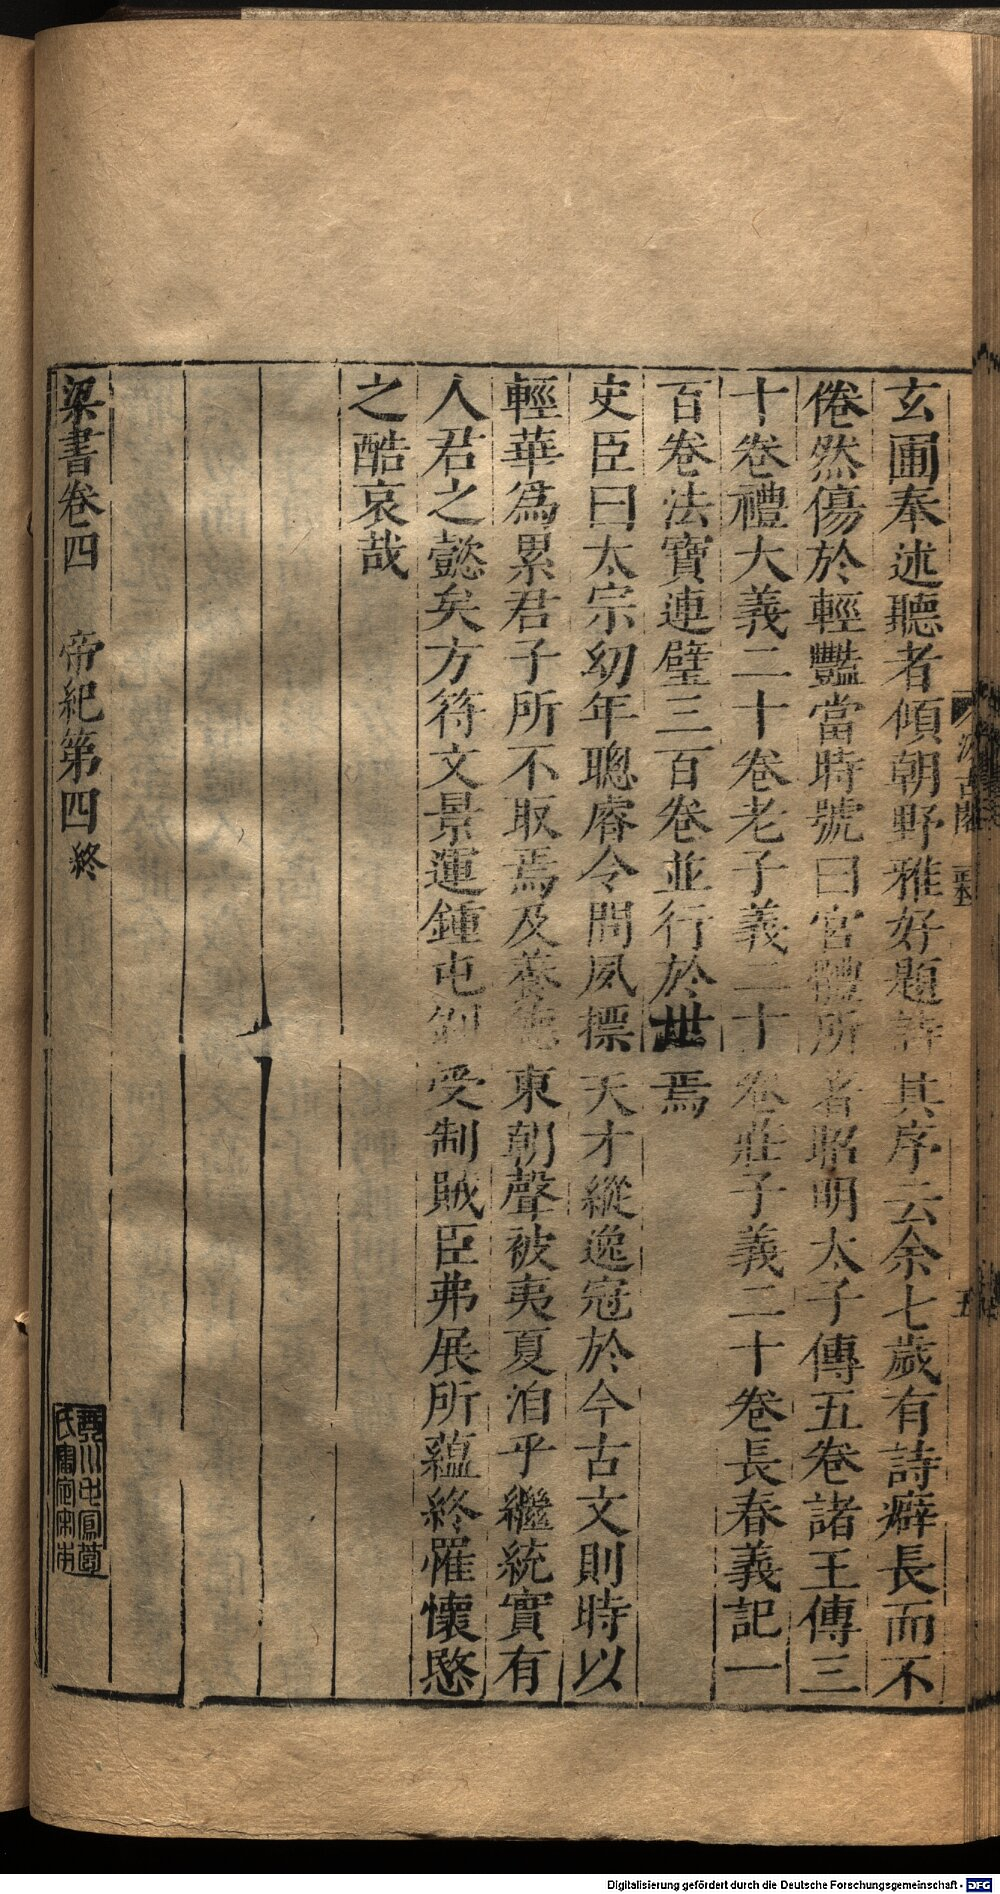 玄圃奉述聽者傾朝野雅好題詩其序云余七歲有詩癖長而不
倦然傷於輕豔當時號曰宮體所著昭明太子傳五卷諸王傳三
十卷禮大義二十卷老子義二十卷莊子義二十卷長春義記一
百卷法寶連璧三百卷並行於世焉
史臣曰太宗幼年聰睿令問夙摽天才縱逸冠於今古文則時以
輕華爲累君子所不取焉及養德東朝聲被夷夏洎乎繼統實有
人君之懿矣方符文景運鍾屯剝受制賊臣弗展所蘊終罹懷愍
之酷哀哉
梁書卷四 帝紀第四終
汲古閣
五
Digitalisierung gefördert durch die Deutsche Forschungsgemeinschaft - DFG